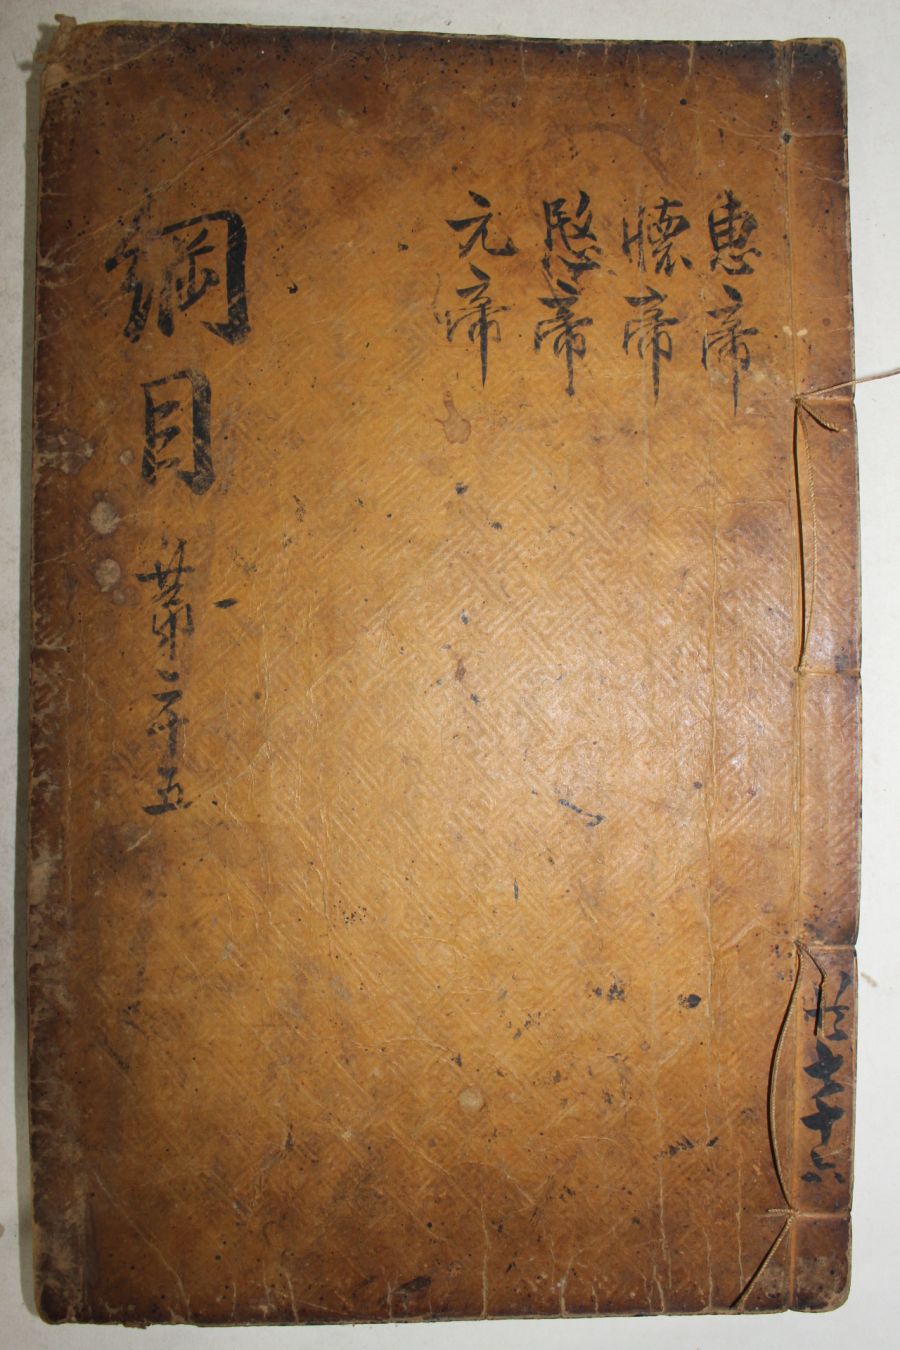 惠帝
懷帝
愍帝
元帝
綱目
第二十五
共七十六